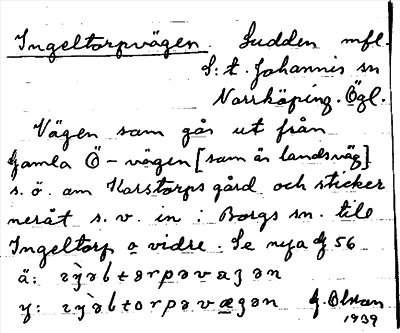 Ingeltorpvägen. Sudden mfl.
S:t. Johannis sn
Norrköping. Ögl.
Vägen som går ut från
Gamla Ö-vägen [som är landsväg]
s. ö. om Karstorps gård och sticker
neråt s. v. in i Borgs sn. till
Ingeltorp o vidre. Se nya G 56
ä:
y:
G. Olsson
1939